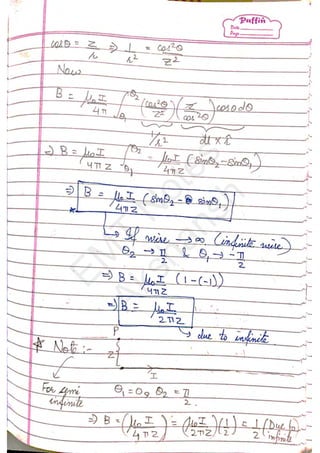 Puffin
Date
Page
cosθ = z/r ⇒ 1/r² = cos²θ/z²
Now
B = μ₀I/4π ∫θ₁^θ₂ (cos²θ/z²) (z/cos²θ) cosθ dθ
1/r² dl × r̂
⇒ B = μ₀I/4πz ∫θ₁^θ₂ = μ₀I/4πz (sinθ₂ - sinθ₁)
⇒ B = μ₀I/4πz (sinθ₂ - sinθ₁)
↳ If wire → ∞ (infinite wire)
θ₂ → π/2 & θ₁ → -π/2
⇒ B = μ₀I/4πz (1-(-1))
⇒ B = μ₀I/2πz
↳ due to infinite
P
* Note :-
z
I
For semi infinite
θ₁ = 0, θ₂ = π/2.
⇒ B = (μ₀I/4πz) = (μ₀I/2πz)(1/2) = 1/2 (Due to infinite